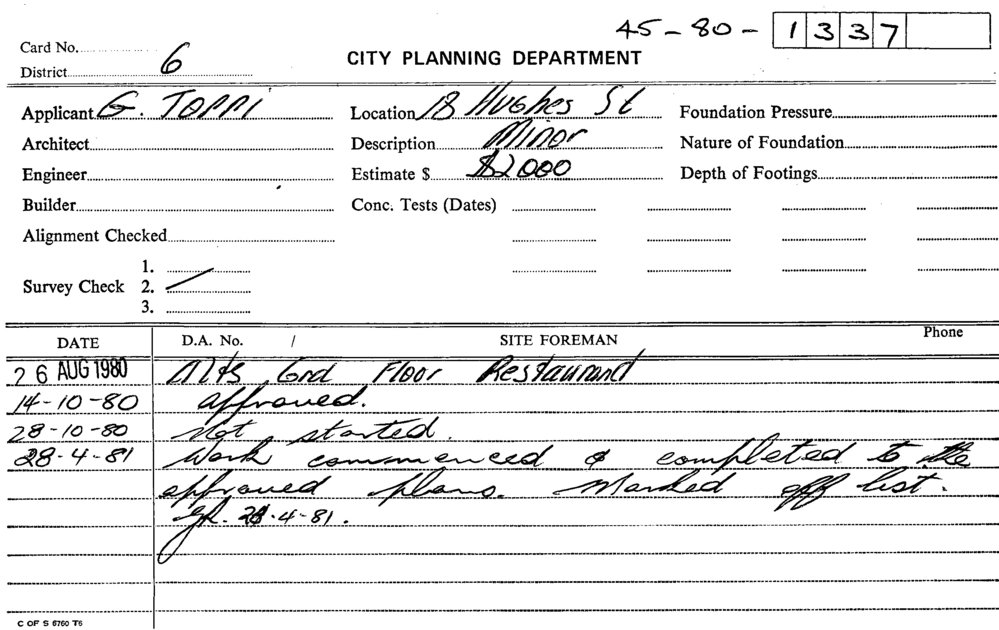 45-80- 1 3 3 7
Card No.
District 6
CITY PLANNING DEPARTMENT
Applicant G. TOPPI Location 18 Hughes St Foundation Pressure
Architect Description Minor Nature of Foundation
Engineer Estimate $ $2000 Depth of Footings
Builder Conc. Tests (Dates)
Alignment Checked
1.
Survey Check 2.
3.
DATE D.A. No. / SITE FOREMAN Phone
26 AUG 1980 Alts Grd Floor Restaurant
14-10-80 approved.
28-10-80 Not started.
28-4-81 Work commenced & completed to the
approved plans. Marked off list.
28-4-81.
C OF S 6760 T6